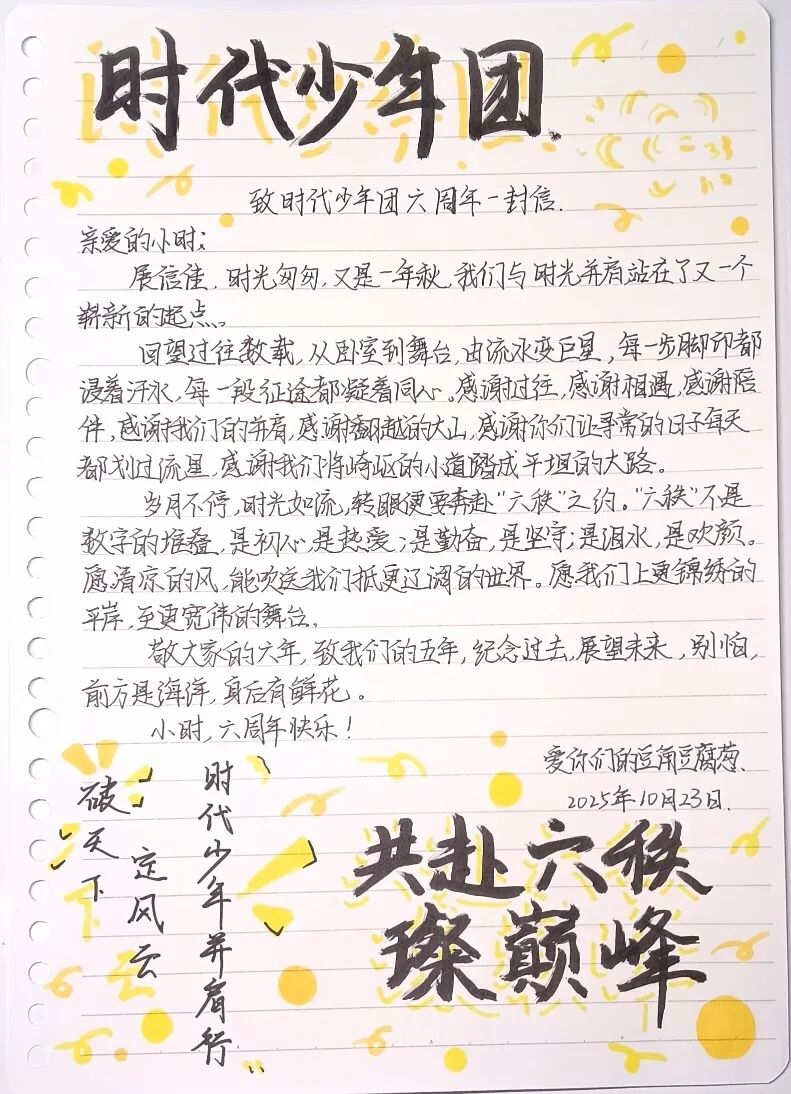 时代少年团
致时代少年团六周年一封信.
亲爱的小时:
展信佳,时光匆匆,又是一年秋,我们与时光并肩站在了又一个
崭新的起点。
回望过往数载,从卧室到舞台,由流水变巨星,每一步脚印都
浸着汗水,每一段征途都凝着同心。感谢过往,感谢相遇,感谢陪
伴,感谢我们的并肩,感谢翻越的大山,感谢你们让寻常的日子每天
都划过流星,感谢我们将崎岖的小道踏成平坦的大路。
岁月不停,时光如流,转眼便要奔赴“六秩”之约。“六秩”不是
数字的堆叠,是初心,是热爱;是勤奋,是坚守;是泪水,是欢颜。
愿清凉的风,能吹送我们抵更辽阔的世界。愿我们上更锦绣的
平岸,至更宽伟的舞台.
敬大家的六年,致我们的五年,纪念过去,展望未来,别怕,
前方是海洋,身后有鲜花。
小时,六周年快乐!
爱你们的豆角豆腐葱.
2025年10月23日.
破天下
定风云
时代少年并肩行
共赴六秩
璨巅峰